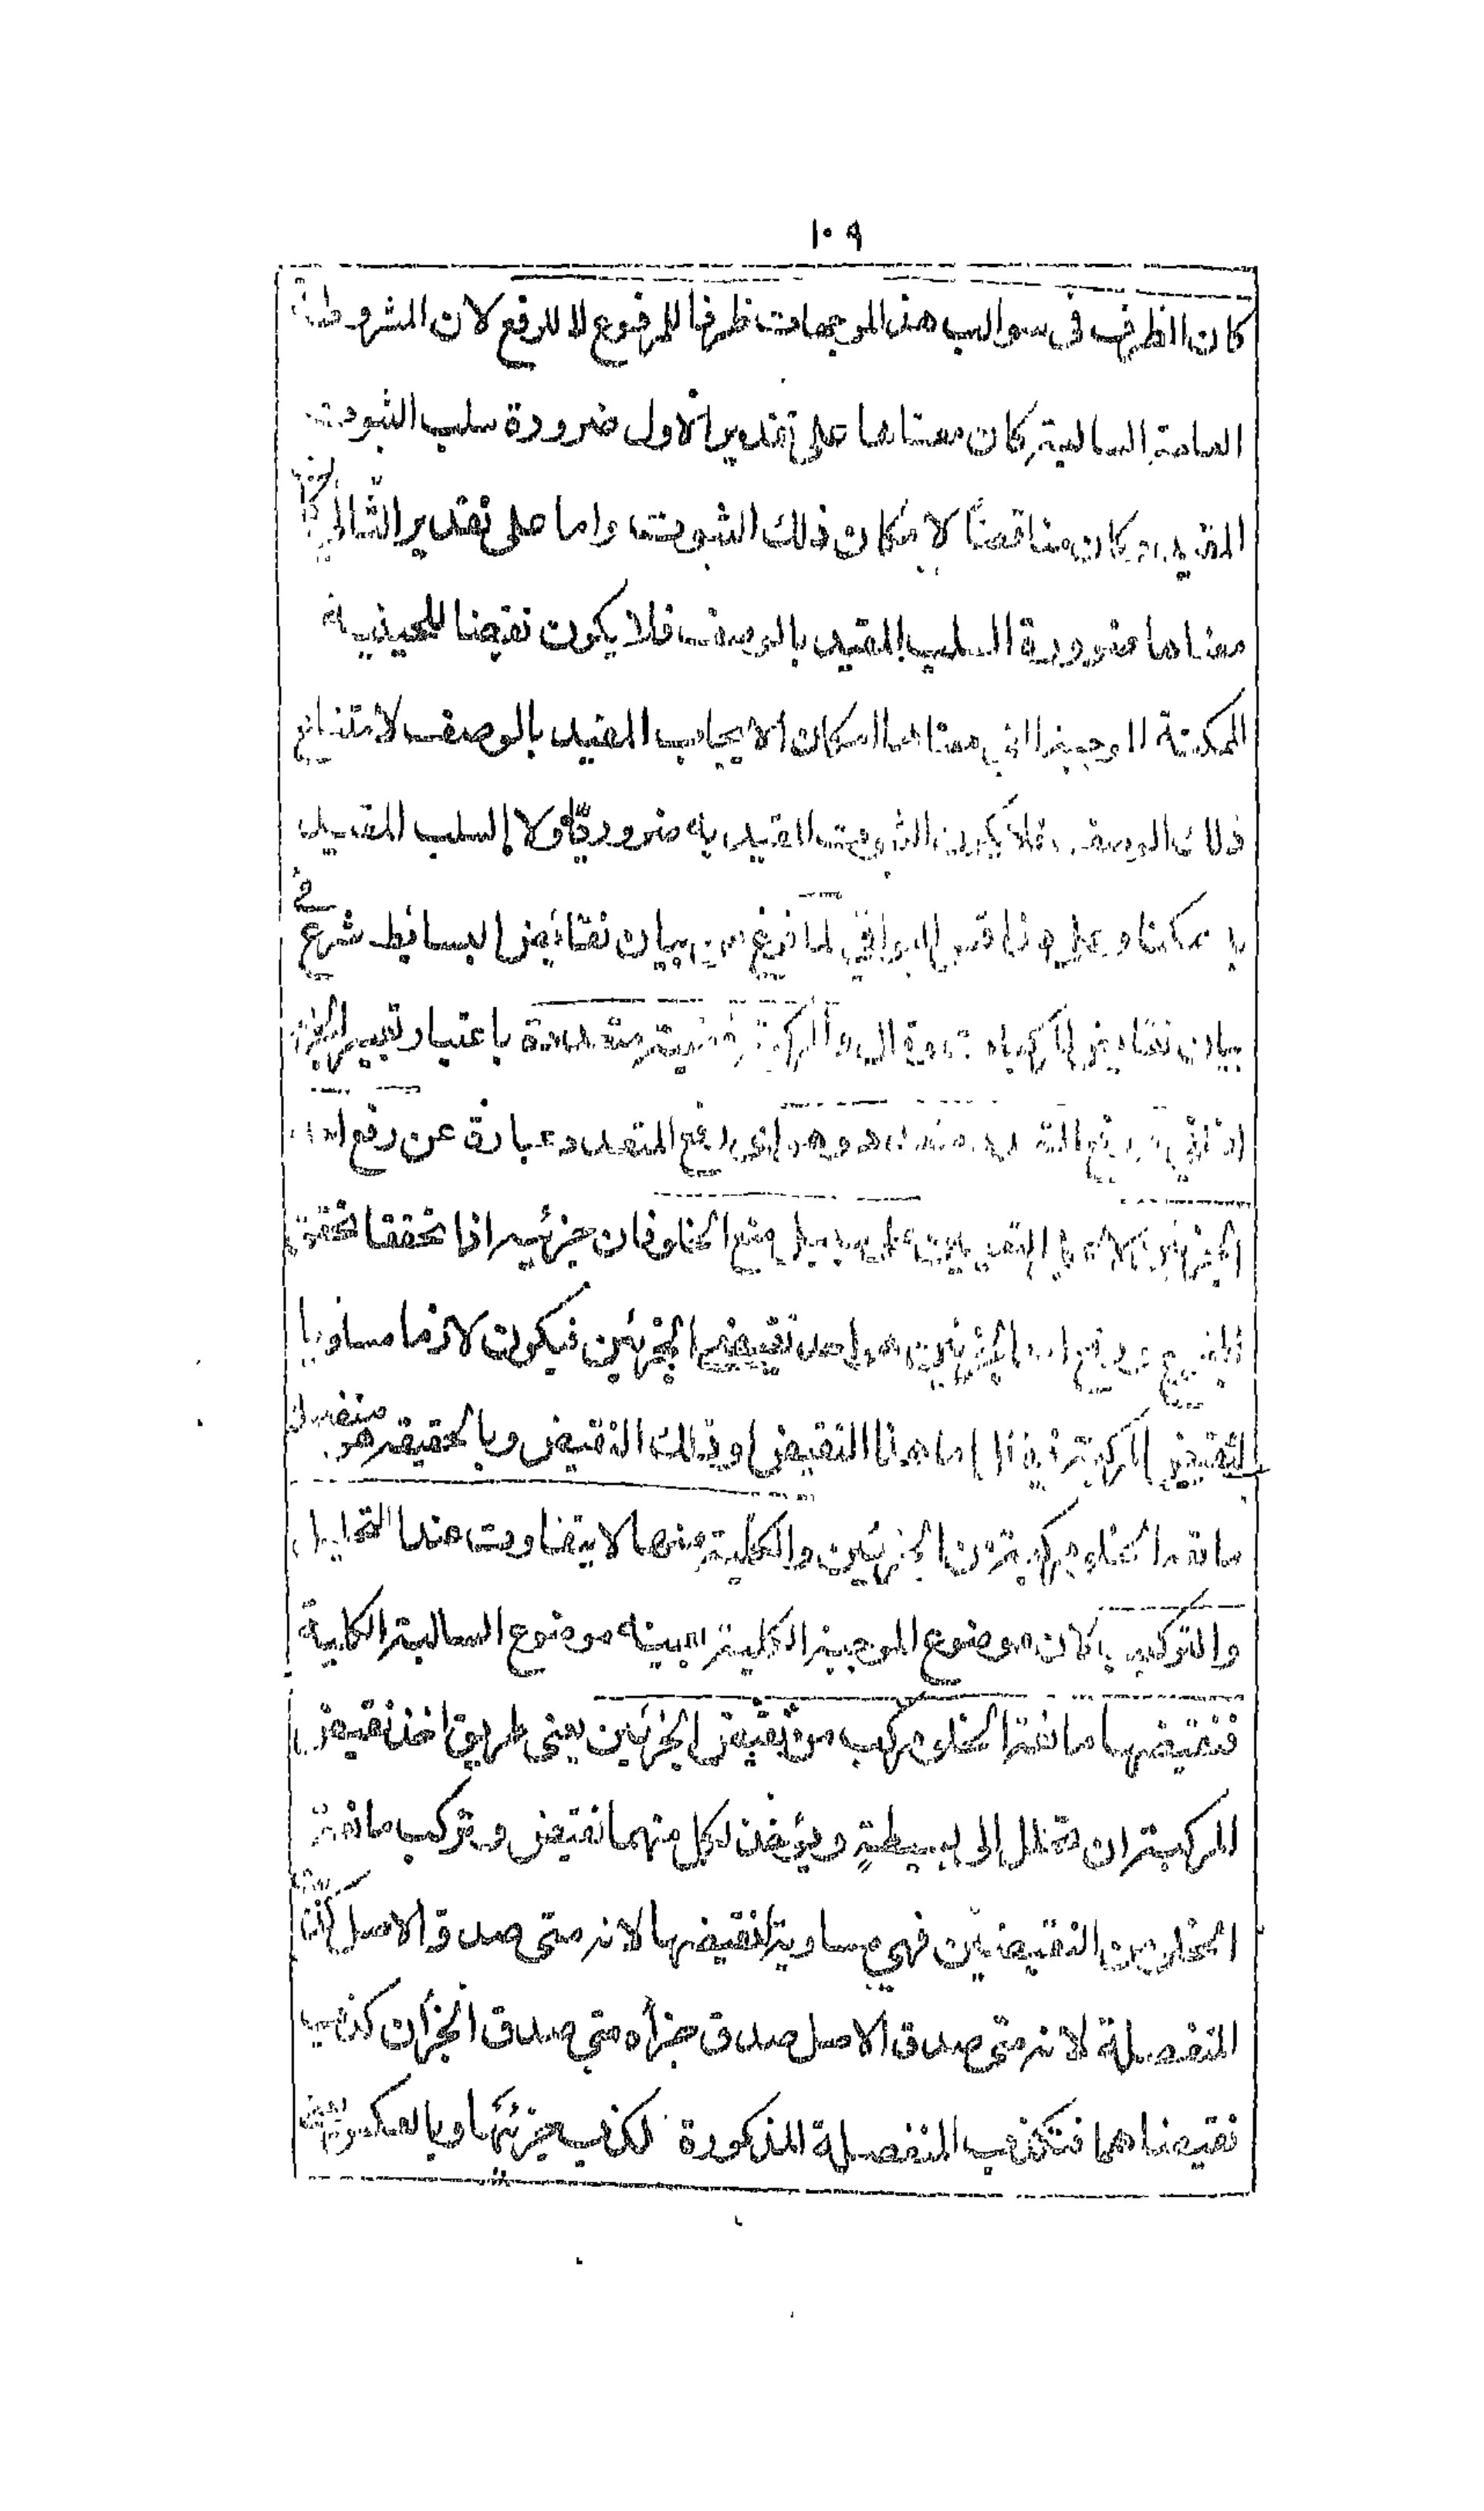 ١٠٩
كان الظرف فى سوالب هذه الموجهات ظرفا للمرفوع لا للرفع لان المشروطة
العامة السالبة كان معناها على تقدير الاول ضرورة سلب الثبوت
المقيد وكان مناقضا لامكان ذلك الثبوت واما على تقدير الثانى
معناها ضرورة السلب المقيد بالوصف فلا يكون نقيضا للحينية
الممكنة الموجبة التى معناها امكان الايجاب المقيد بالوصف لامتناع
ذلك الوصف فلا يكون الثبوت المقيد به ضروريا ولا السلب المقيد
به ممكنا وعلى هذا قس البواقى لما فرغ من بيان نقائض البسائط شرع فى
بيان نقائض المركبات وقال والمركبة قضية متعددة باعتبار
رفع المتعدد متعدد وهو اى رفع المتعدد عبارة عن رفع احد
الجزئين على سبيل منع الخلو فان جزئيه اذا تحققا تحقق
المجموع ورفع احد الجزئين هو احد نقيضى الجزئين فيكون لازما مساويا
لنقيض المركبة اما هذا النقيض او ذلك النقيض وبالحقيقة هو منفصلة
مانعة الخلو مركبة من الجزئين والكلية منها لا يتفاوت عند التحليل
والتركيب لان موضوع الموجبة الكلية بعينه موضوع السالبة الكلية
فنقيضها مانعة الخلو مركب من نقيض الجزئين يعنى طريق اخذ نقيض
المركبة ان تحلل الى بسيطة ويؤخذ لكل منهما نقيض وتركب مانعة
الخلو من النقيضين فهى مساوية لنقيضها لانه متى صدق الاصل
المنفصلة لانه متى صدق الاصل صدق جزأه متى صدق الجزأن كذب
نقيضاهما فتكذب المنفصلة المذكورة لكذب جزئيها وبالعكس